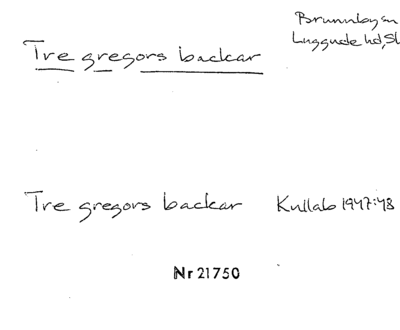 Brunnby sn
Luggude hd, Sk
Tre gregors backar
Tre gregors backar Kullab 1947:48
Nr 21750